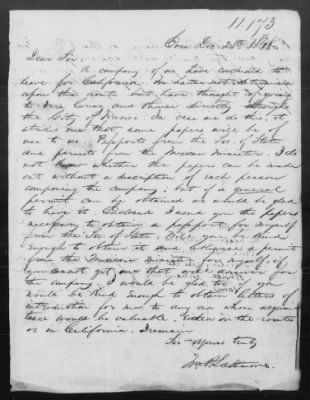 11.173
Erie Dec 28th 1848
Dear Sir
A company of us have concluded to
leave for California. We have not determined
upon the route but have thought of going
to Vera Cruz and thence directly through
the City of Mexico. In case we do this, it
struck me that some papers will be of
use to us. Passports from the Sec. of State
and permits from the Mexican Minister. I do
not know whether the papers can be made
out without a description of each person
composing the company; but if a general
permit can be obtained we would be glad
to have it. Enclosed I send you the papers
necessary to obtain a passport for myself
from the Sec. of State. Will you be kind
enough to obtain it and also a permit
from the Mexican Minister for myself, if
you cannot get one that will answer for
the company. I would be glad too if you
would be kind enough to obtain letters of
introduction for me to any one whose acquain
tance would be valuable. Either on the route
or in California. I remain
Sir Yours truly
Wm